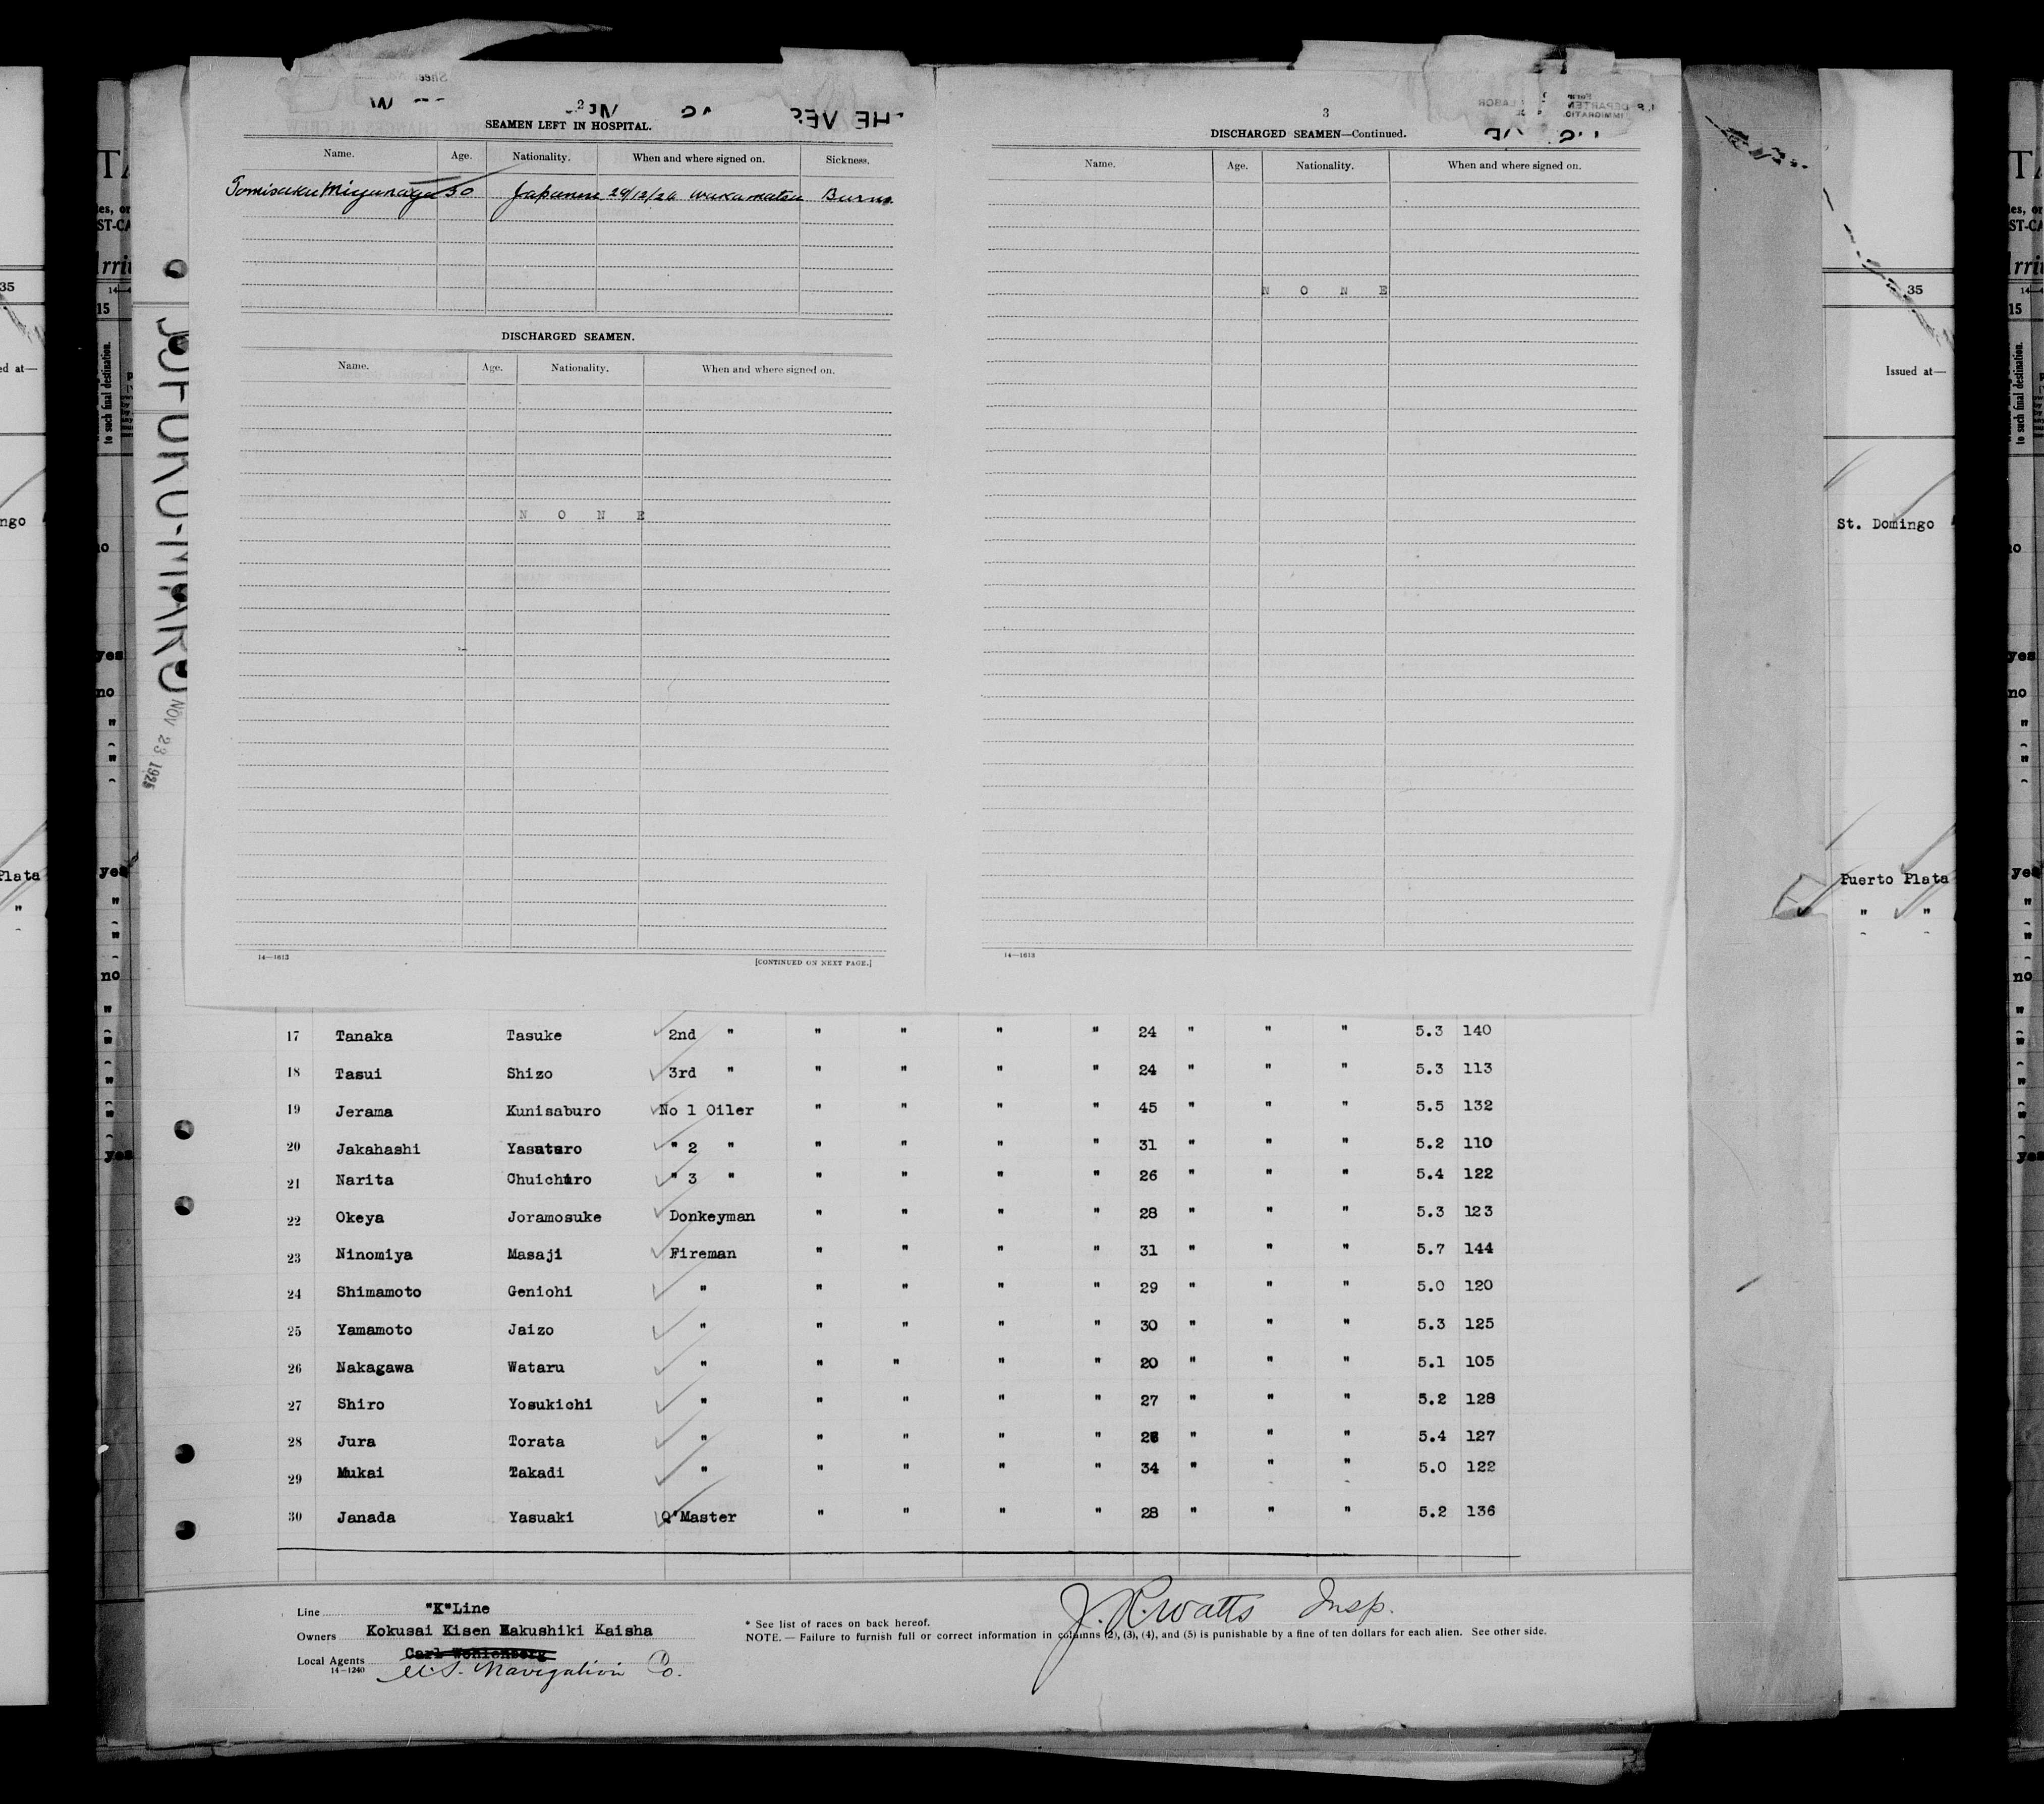 2
SEAMEN LEFT IN HOSPITAL.
Name. Age. Nationality. When and where signed on. Sickness.
Tomisaku Miyanaga 30 Japanese Wakamatsu Burns.
DISCHARGED SEAMEN.
Name. Age. Nationality. When and where signed on.
N O N E
14—1613 [CONTINUED ON NEXT PAGE.]
3
DISCHARGED SEAMEN—Continued.
Name. Age. Nationality. When and where signed on.
N O N E
14—1613
JUFUKU-MARU
NOV 23 1926
35
Issued at—
St. Domingo
Puerto Plata
" "
to such final destination.
yes
no
"
yes
"
no
"
yes
17 Tanaka Tasuke 2nd " " " " " 24 " " " 5.3 140
18 Tasui Shizo 3rd " " " " " 24 " " " 5.3 113
19 Jerama Kunisaburo No 1 Oiler " " " " 45 " " " 5.5 132
20 Jakahashi Yasataro " 2 " " " " " 31 " " " 5.2 110
21 Narita Chuichiro " 3 " " " " " 26 " " " 5.4 122
22 Okeya Joramosuke Donkeyman " " " " 28 " " " 5.3 123
23 Ninomiya Masaji Fireman " " " " 31 " " " 5.7 144
24 Shimamoto Genichi " " " " " 29 " " " 5.0 120
25 Yamamoto Jaizo " " " " " 30 " " " 5.3 125
26 Nakagawa Wataru " " " " " 20 " " " 5.1 105
27 Shiro Yosukichi " " " " " 27 " " " 5.2 128
28 Jura Torata " " " " " " " " 5.4 127
29 Mukai Takadi " " " " " 34 " " " 5.0 122
30 Janada Yasuaki Q'Master " " " " 28 " " " 5.2 136
Line "K"Line
Owners Kokusai Kisen Kakushiki Kaisha
Local Agents Carl Wohlenberg
14-1240 U.S. Navigation Co.
* See list of races on back hereof.
NOTE. — Failure to furnish full or correct information in columns (2), (3), (4), and (5) is punishable by a fine of ten dollars for each alien. See other side.
J. R. Watts Insp.